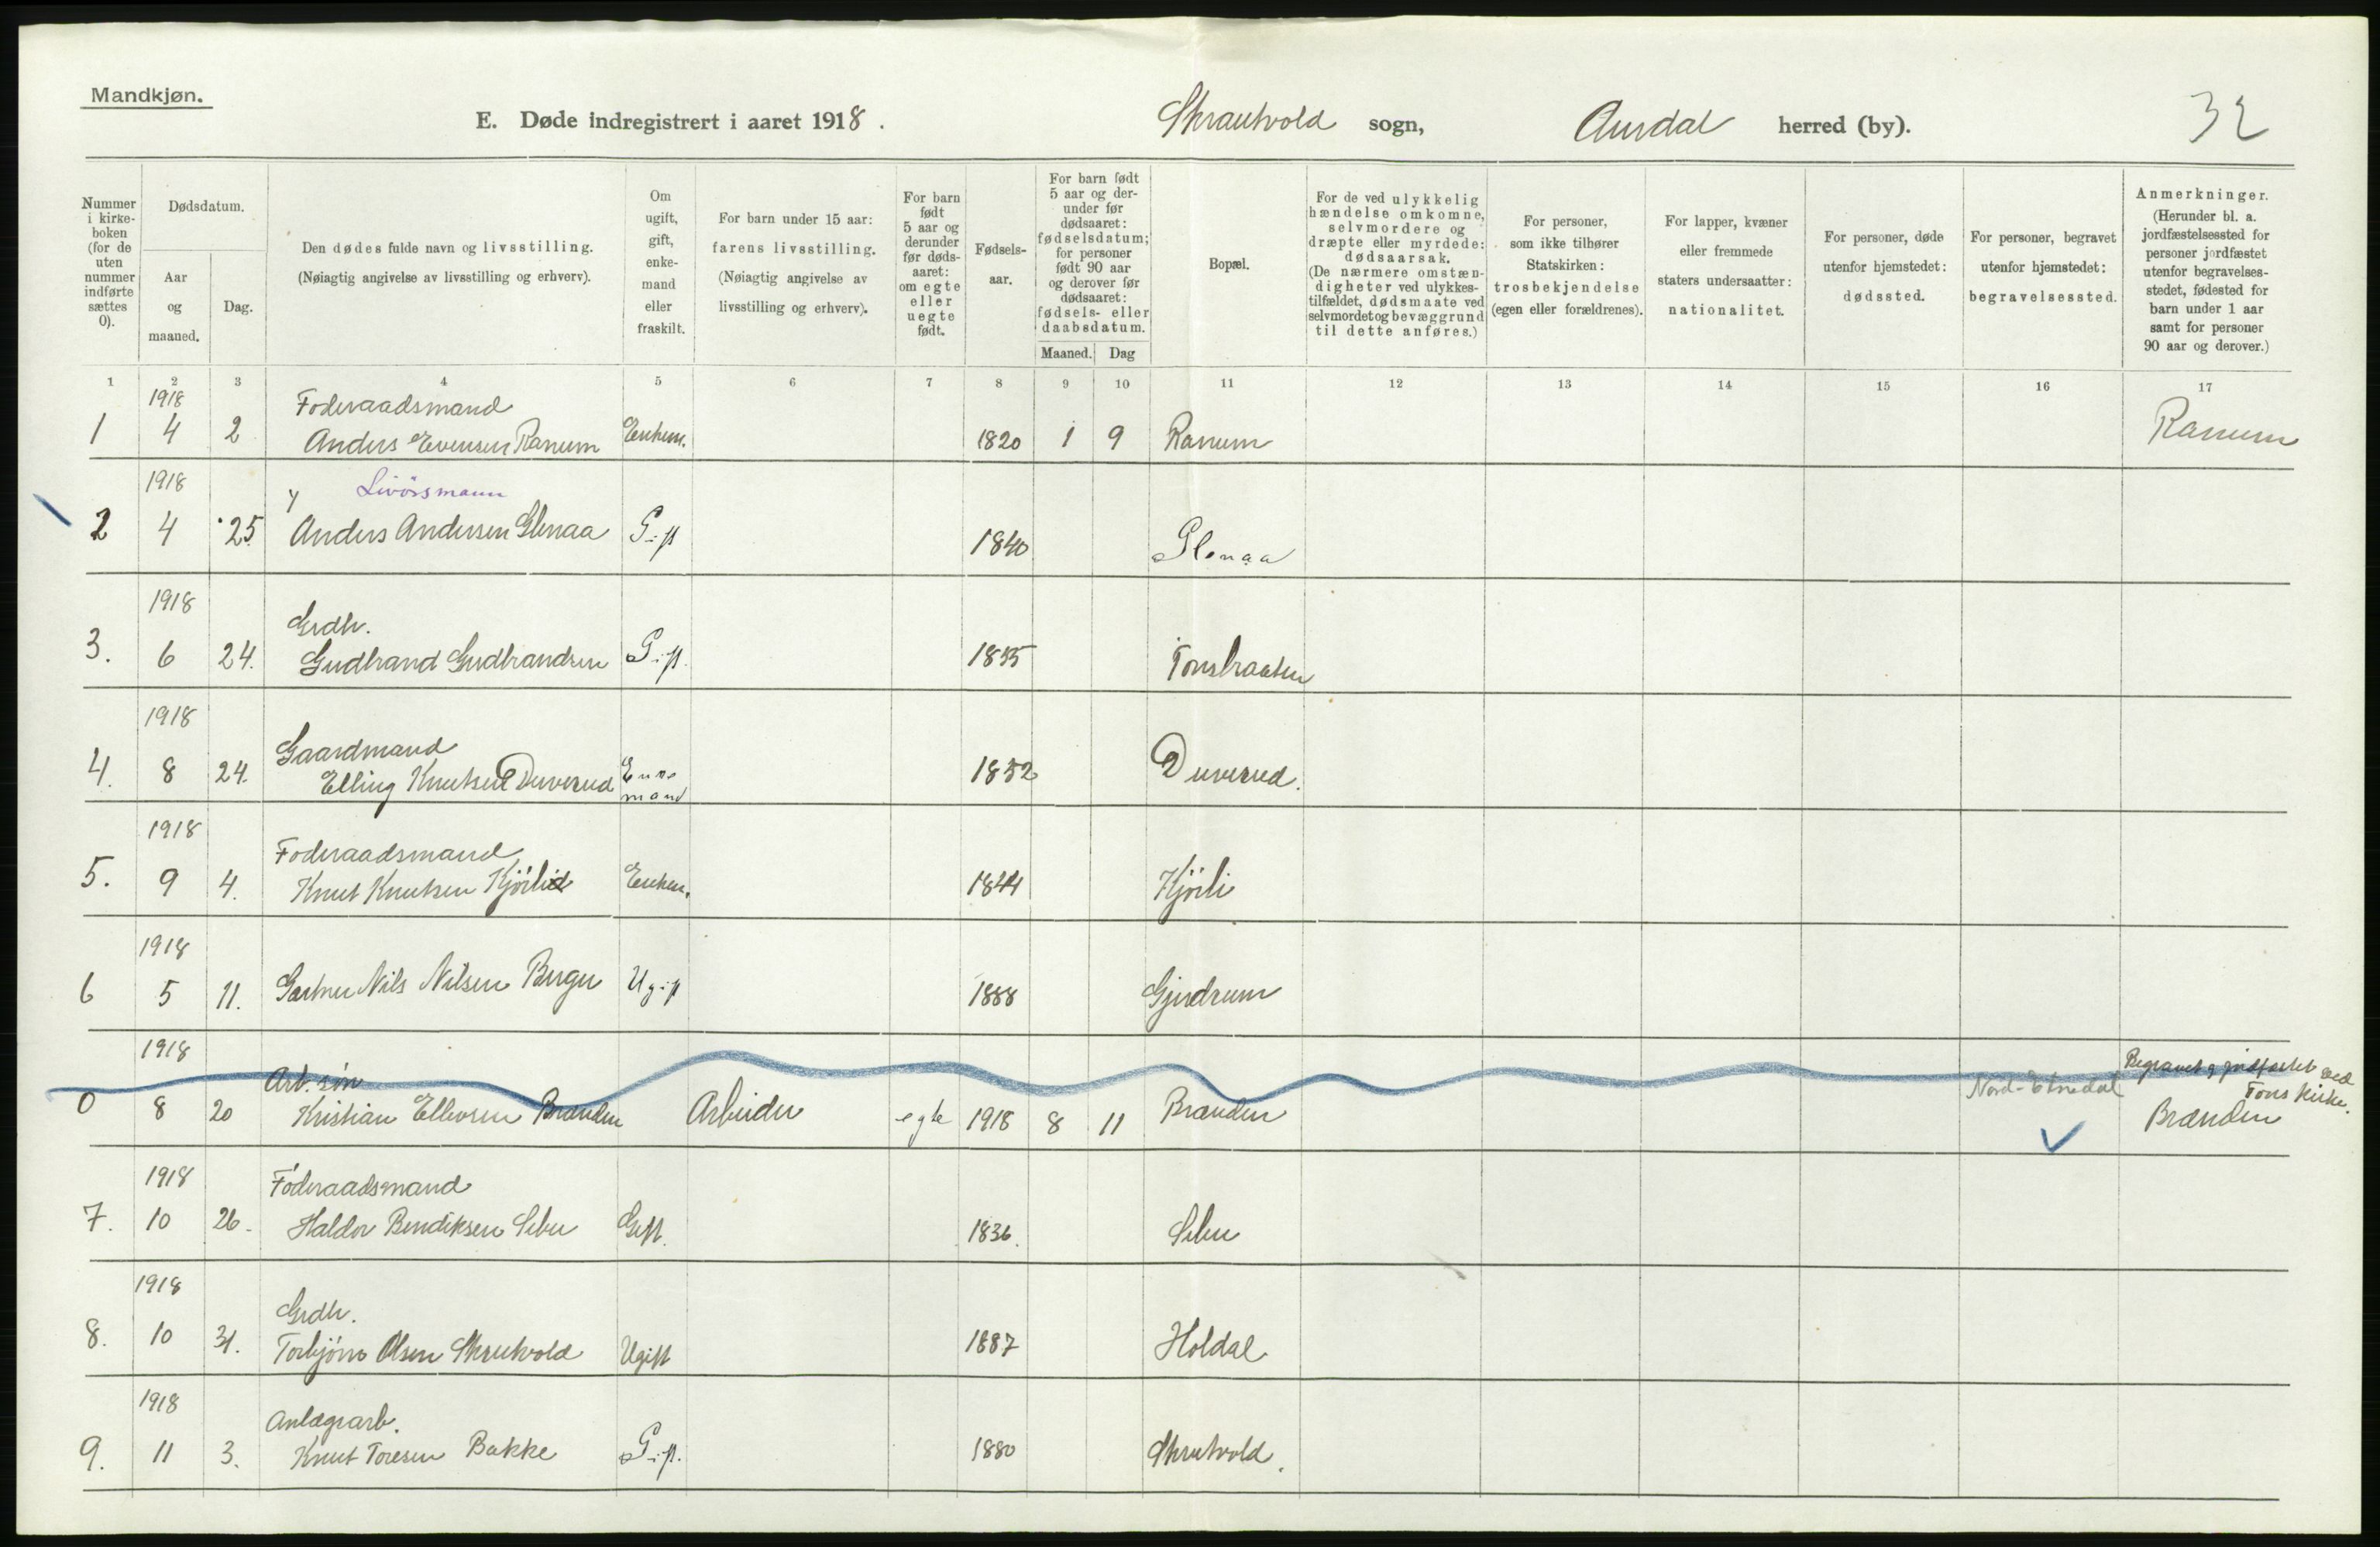 Mandkjøn.
E. Døde indregistrert i aaret 1918. Skrautvold sogn, Aurdal herred (by). 32
Nummer i kirke-boken (for de uten nummer indførte sættes 0).
Dødsdatum.
Aar og maaned.
Dag.
Den dødes fulde navn og livsstilling.
(Nøiagtig angivelse av livsstilling og erhverv).
Om ugift, gift, enke-mand eller fraskilt.
For barn under 15 aar: farens livsstilling.
(Nøiagtig angivelse av livsstilling og erhverv).
For barn født 5 aar og derunder før døds-aaret: om egte eller uegte født.
Fødsels-aar.
For barn født 5 aar og der-under før dødsaaret: fødselsdatum; for personer født 90 aar og derover før dødsaaret: fødsels- eller daabsdatum.
Maaned. Dag
Bopæl.
For de ved ulykkelig hændelse omkomne, selvmordere og dræpte eller myrdede: dødsaarsak.
(De nærmere omstæn-digheter ved ulykkes-tilfældet, dødsmaate ved selvmordet og bevæggrund til dette anføres.)
For personer, som ikke tilhører Statskirken: trosbekjendelse (egen eller forældrenes).
For lapper, kvæner eller fremmede staters undersaatter: nationalitet.
For personer, døde utenfor hjemstedet: dødssted.
For personer, begravet utenfor hjemstedet: begravelsessted.
Anmerkninger.
(Herunder bl. a. jordfæstelsessted for personer jordfæstet utenfor begravelses-stedet, fødested for barn under 1 aar samt for personer 90 aar og derover.)
1 2 3 4 5 6 7 8 9 10 11 12 13 14 15 16 17
1918 Foderaadsmand
1 4 2 Anders Evensen Ranum Enkem. 1820 1 9 Ranum Ranum
1918 Livörsmann
2 4 25. Anders Andersen Glenaa Gift 1840 Glenaa
1918 Grdbr.
3. 6 24. Gudbrand Gudbrandsen Gift. 1855 Tonsbraaten
1918 Gaardmand
4. 8 24. Elling Knutsen Duverud Enke mand 1852 Duverud.
1918 Foderaadsmand
5. 9 4. Knut Knutsen Kjörli Enkem. 1844 Kjörli
1918
6 5 11. Gartner Nils Nilsen Berger Ugift 1888 Gjerdrum
1918 Arb. søn Begravet og jordfæstet ved
Nord-Etnedal Tons Kirke.
0 8 20 Kristian Ellevsen Branden Arbeider egte 1918 8 11 Branden Branden
1918 Føderaadsmand
7. 10 26. Haldor Bendiksen Sebu Gift. 1836. Sebu
1918 Grdbr.
8. 10 31. Torbjörn Olsen Skrutvold Ugift 1887 Holdal
1918 Anlægsarb.
9. 11 3. Knut Toresen Bakke Gift. 1880 Skrutvold.